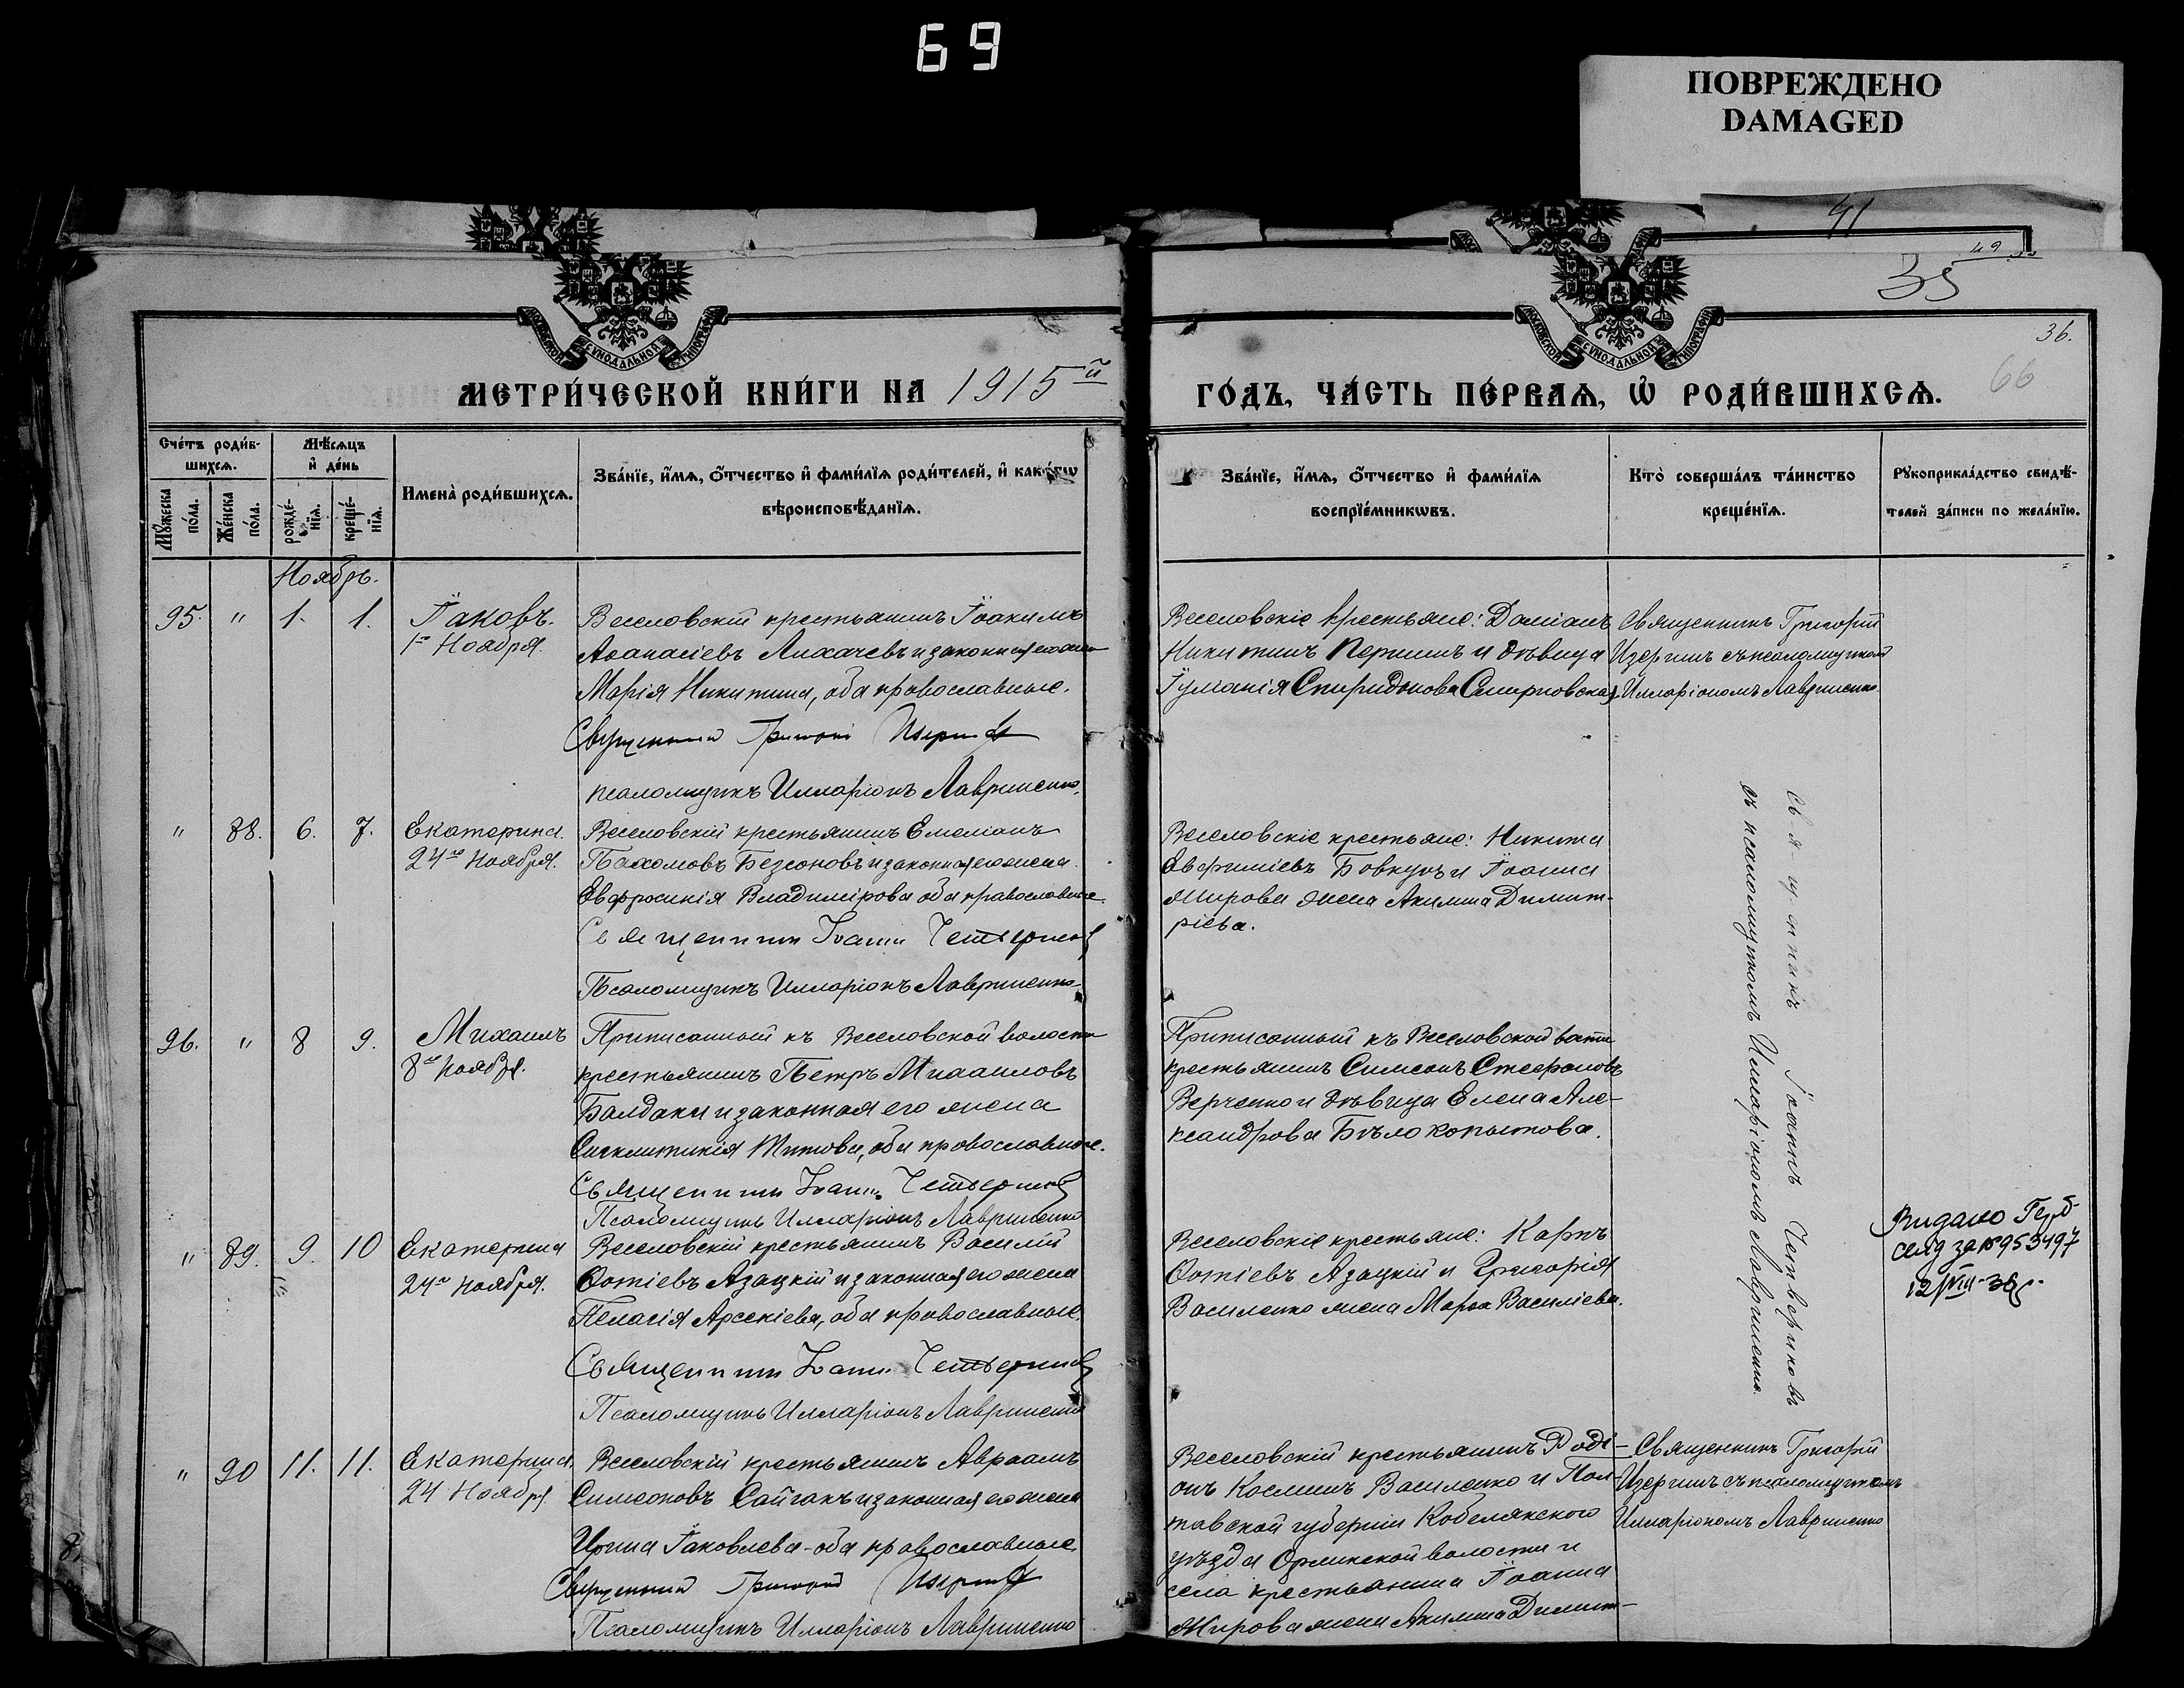 69
ПОВРЕЖДЕНО
DAMAGED
41
49
35
36.
66
МОСКОВСКОЙ СѴНОДАЛЬНОЙ ТИПОГРАФІИ
МОСКОВСКОЙ СѴНОДАЛЬНОЙ ТИПОГРАФІИ
МЕТРИ́ЧЕСКОЙ КНИ́ГИ НА 1915й
ГО́ДЪ, ЧА́СТЬ ПЕ́РВАѦ, Ѡ҆ РОДИ́ВШИХСѦ.
Сче́тъ роди́в-
шихсѧ.
Мѣ́сѧцъ
и҆ де́нь
Мꙋ́жеска по́ла.
Же́нска по́ла.
рожде́-
нїѧ.
креще́-
нїѧ.
Имена̀ роди́вшихсѧ.
Зва́нїе, и҆́мѧ, ѻ҆́тчество и҆ фами́лїѧ роди́телей, и҆ како́гѡ
вѣроисповѣ́данїѧ.
Зва́нїе, и҆́мѧ, ѻ҆́тчество и҆ фами́лїѧ
воспрїе́мникѡвъ.
Кто̀ соверша́лъ та́инство
креще́нїѧ.
Рꙋкоприкла́дство свидѣ́-
телей за́писи по жела́нїю.
Ноябрь.
95. " 1. 1. Іаковъ.
1го Ноября.
Веселовскій крестьянинъ Іоакимъ
Аѳанасіевъ Лихачевъ и законная его жена
Марія Никитина, оба православные.
Священникъ Григорій Изергинъ
псаломщикъ Илларіонъ Лавриненко.
Веселовскіе крестьяне: Даміанъ
Никитинъ Першинъ и дѣвица
Іуліанія Спиридонова Смирновская.
Священникъ Григорій
Изергинъ съ псаломщикомъ
Илларіономъ Лавриненко.
" 88. 6. 7. Екатерина.
24го Ноября.
Веселовскій крестьянинъ Емеліанъ
Пахомовъ Безсоновъ и законная его жена
Евфросинія Владимірова оба православные.
Священникъ Іоаннъ Четвериковъ
Псаломщикъ Илларіонъ Лавриненко
Веселовскіе крестьяне: Никита
Евфиміевъ Бовкунъ и Іоанна
Жирова жена Акилина Димит-
ріева.
Священникъ Іоаннъ Четвериковъ
съ псаломщикомъ Илларіономъ Лавриненко.
96. " 8 9. Михаилъ
8го Ноября.
Приписанный къ Веселовской волости
крестьянинъ Петръ Михаиловъ
Балдаки и законная его жена
Сигклитикія Титова, оба православные.
Священникъ Іоаннъ Четвериковъ
Псаломщикъ Илларіонъ Лавриненко
Приписанный къ Веселовской волости
крестьянинъ Симеонъ Стефановъ
Верченко и дѣвица Елена Але-
ксандрова Бѣлокопытова.
" 89. 9. 10 Екатерина
24го Ноября.
Веселовскій крестьянинъ Василій
Фотіевъ Азацкій и законная его жена
Пелагія Арсеніева, оба православные.
Священникъ Іоаннъ Четвериковъ
Псаломщикъ Илларіонъ Лавриненко
Веселовскіе крестьяне: Карпъ
Фотіевъ Азацкій и Григорія
Василенко жена Марѳа Василіева.
Видано Герб-
свід за № 953497
12/VIII-38 г.
" 90 11. 11. Екатерина.
24 Ноября
Веселовскій крестьянинъ Авраамъ
Симеоновъ Сайганъ и законная его жена
Ирина Іаковлева - оба православные
Священникъ Григорій Изергинъ
Псаломщикъ Илларіонъ Лавриненко
Веселовскій крестьянинъ Роді-
онъ Космимъ Василенко и Пол-
тавской губерніи Кобелякского
уѣзда Орликской волости и
села крестьянина Іоанна
Жирова жена Акилина Димит-
Священникъ Григорій
Изергинъ съ псаломщикомъ
Илларіономъ Лавриненко